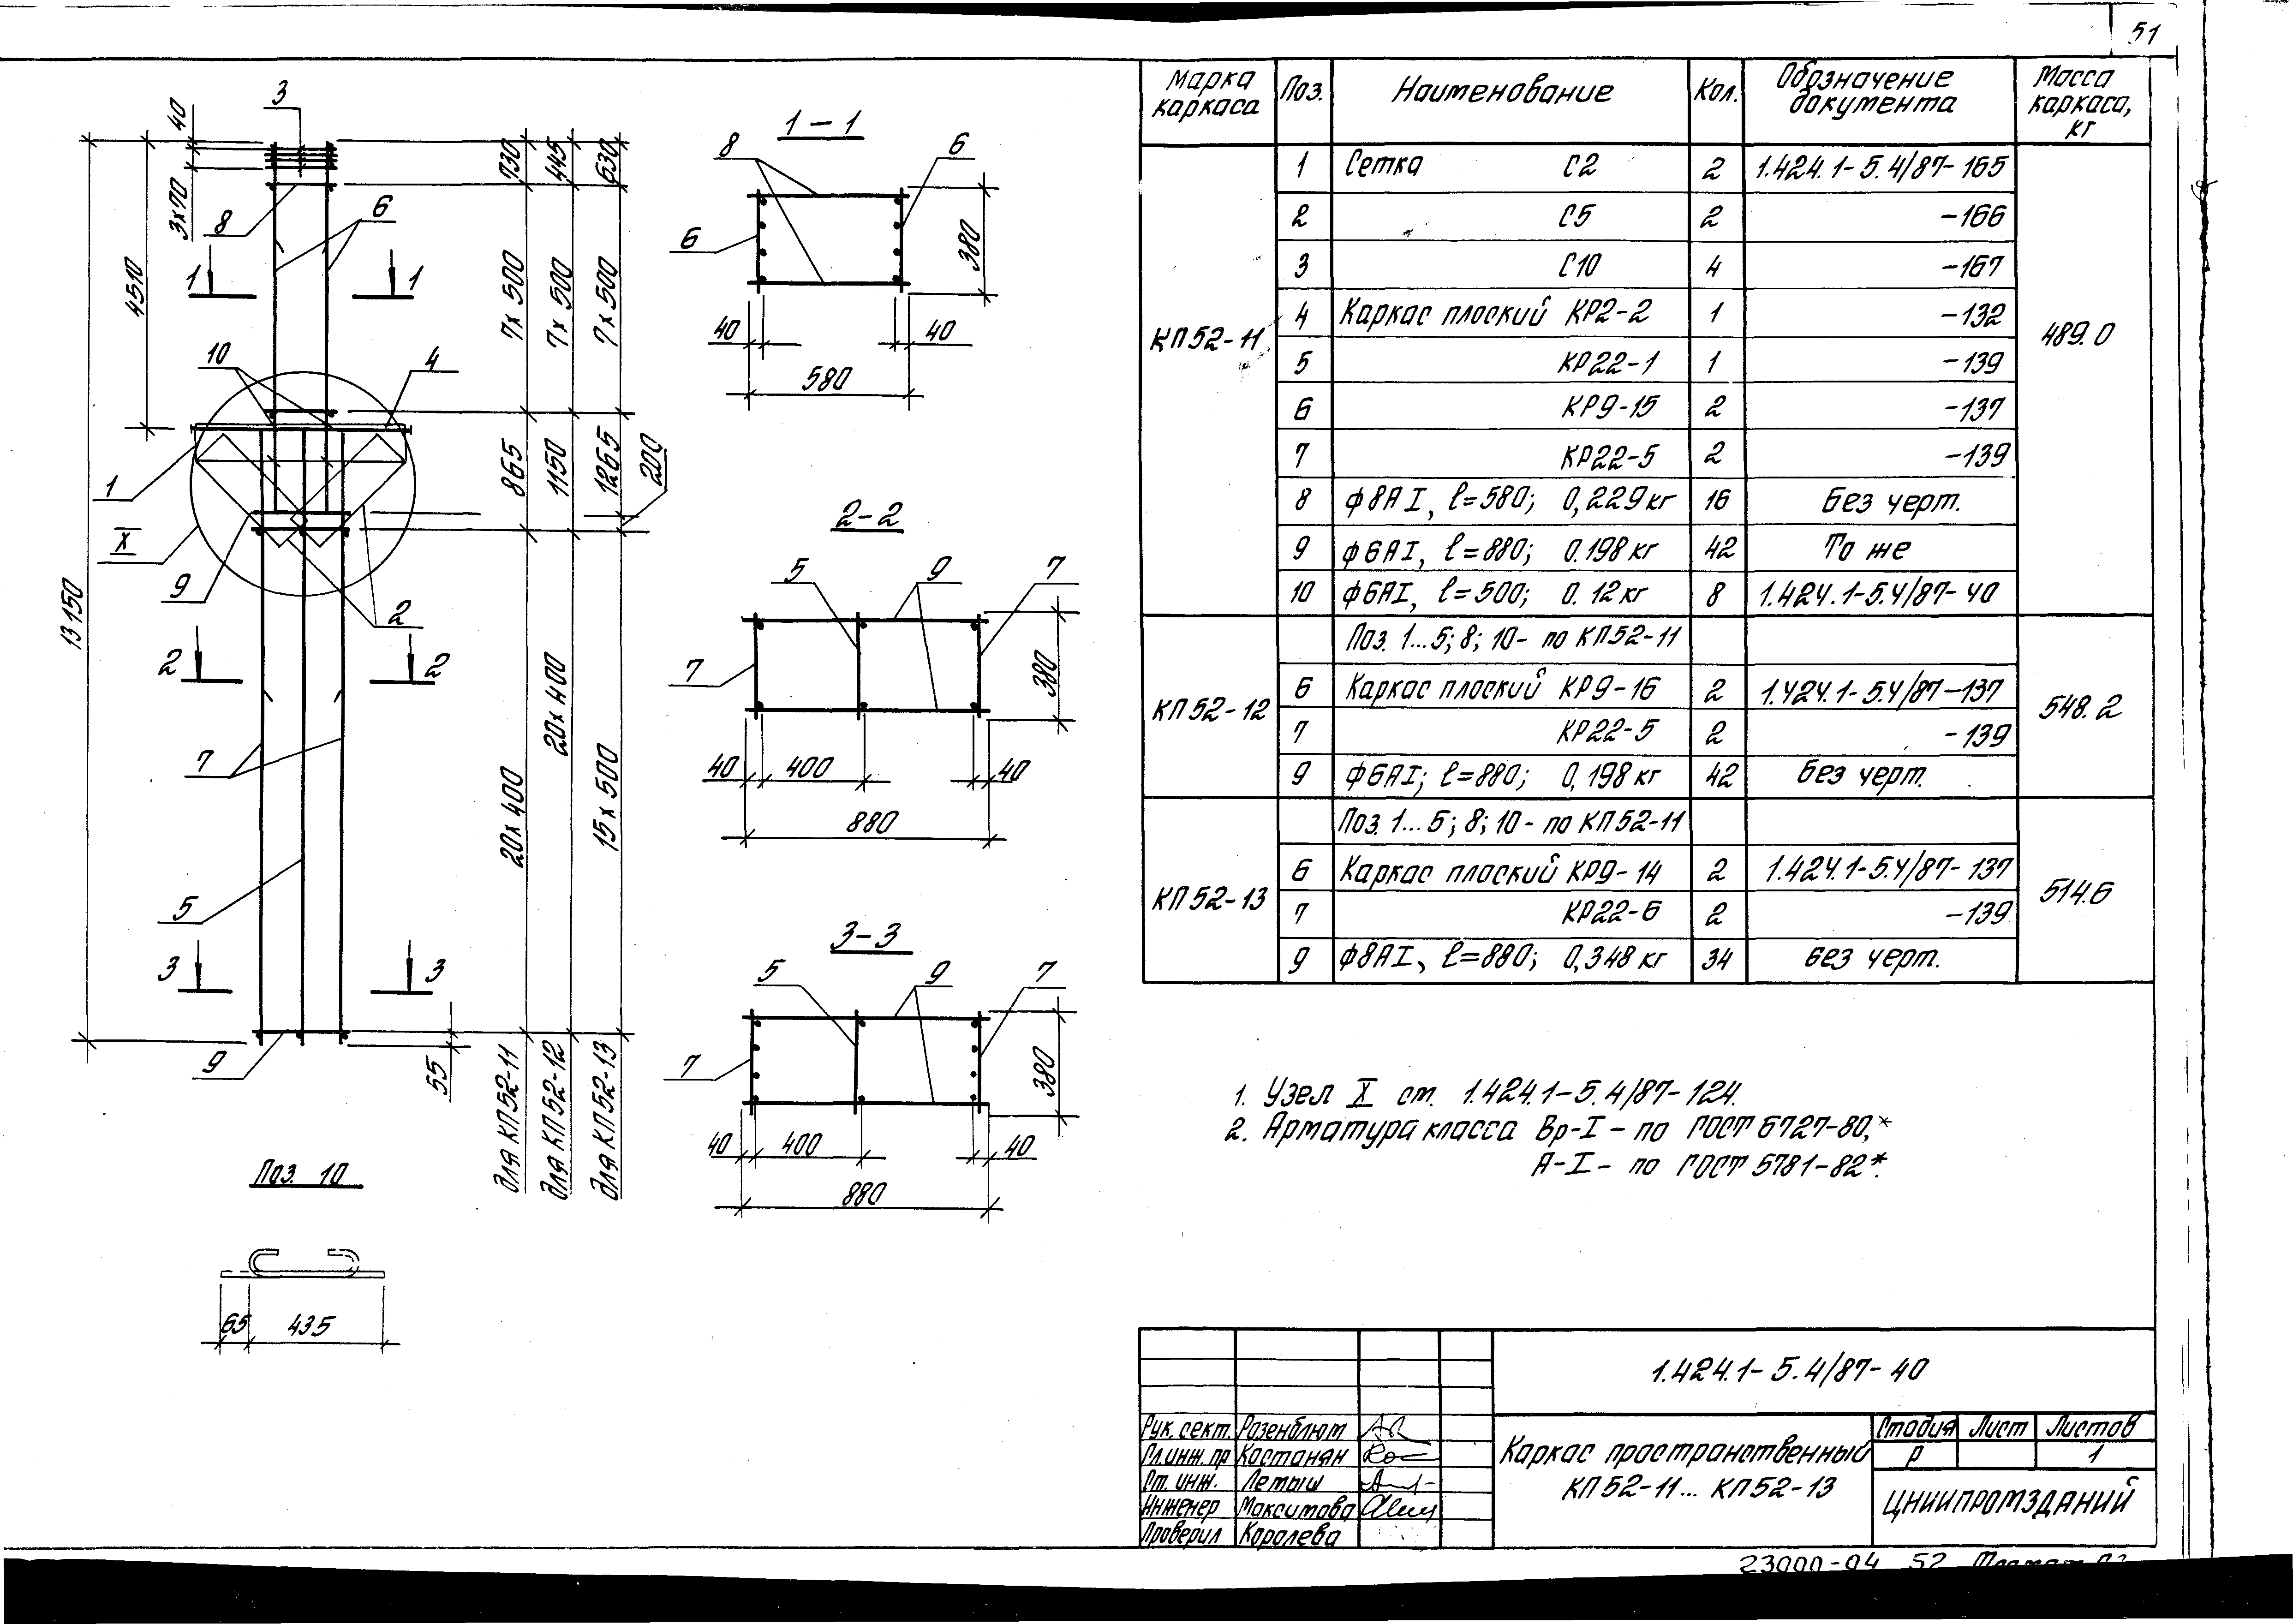 51
Марка каркаса | Поз. | Наименование | Кол. | Обозначение документа | Масса каркаса, кг
КП52-11 | 1 | Сетка С2 | 2 | 1.424.1-5.4/87-165 | 489.0
2 | С5 | 2 | -166
3 | С10 | 4 | -167
4 | Каркас плоский КР2-2 | 1 | -132
5 | КР22-1 | 1 | -139
6 | КР9-15 | 2 | -137
7 | КР22-5 | 2 | -139
8 | ф8АI, ℓ=580; 0,229кг | 16 | Без черт.
9 | ф6АI, ℓ=880; 0.198кг | 42 | То же
10 | ф6АI, ℓ=500; 0.12кг | 8 | 1.424.1-5.4/87-40
КП52-12 | Поз. 1...5; 8; 10- по КП52-11 | 548.2
6 | Каркас плоский КР9-16 | 2 | 1.424.1-5.4/87-137
7 | КР22-5 | 2 | -139
9 | ф6АI; ℓ=880; 0,198кг | 42 | без черт.
КП52-13 | Поз. 1...5; 8; 10- по КП52-11 | 514.6
6 | Каркас плоский КР9-14 | 2 | 1.424.1-5.4/87-137
7 | КР22-6 | 2 | -139
9 | ф8АI, ℓ=880; 0,348кг | 34 | без черт.
3
40
3х70
8
6
1 1
4510
10
4
1
X
9
2
13150
2 2
7
5
3 3
9
55
730 445 630
7х500 7х500 7х500
865 1150 1265 200
20х400 20х400 15х500
для КП52-11
для КП52-12
для КП52-13
1-1
8 6
6
380
40 40
580
2-2
5 9 7
7
380
40 400 40
880
3-3
5 9 7
7
380
40 400 40
880
Поз. 10
65 435
1. Узел X см. 1.424.1-5.4/87-124.
2. Арматура класса Вр-I - по ГОСТ 6727-80,*
А-I - по ГОСТ 5781-82*.
1.424.1-5.4/87-40
Рук. сект. Розенблюм
Гл. инж. пр Костанян
Ст. инж. Летыш
Инженер Максимова
Проверил Королева
Каркас пространственный
КП52-11... КП52-13
Стадия Лист Листов
Р 1
ЦНИИПРОМЗДАНИЙ
23000-04 52